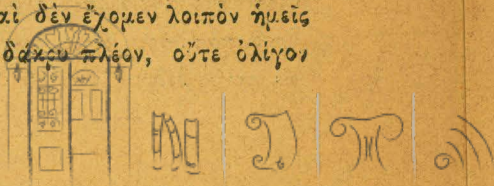 αὶ δὲν ἔχομεν λοιπὸν ἡμεῖς
δάκρυ πλέον, οὔτε ὀλίγον